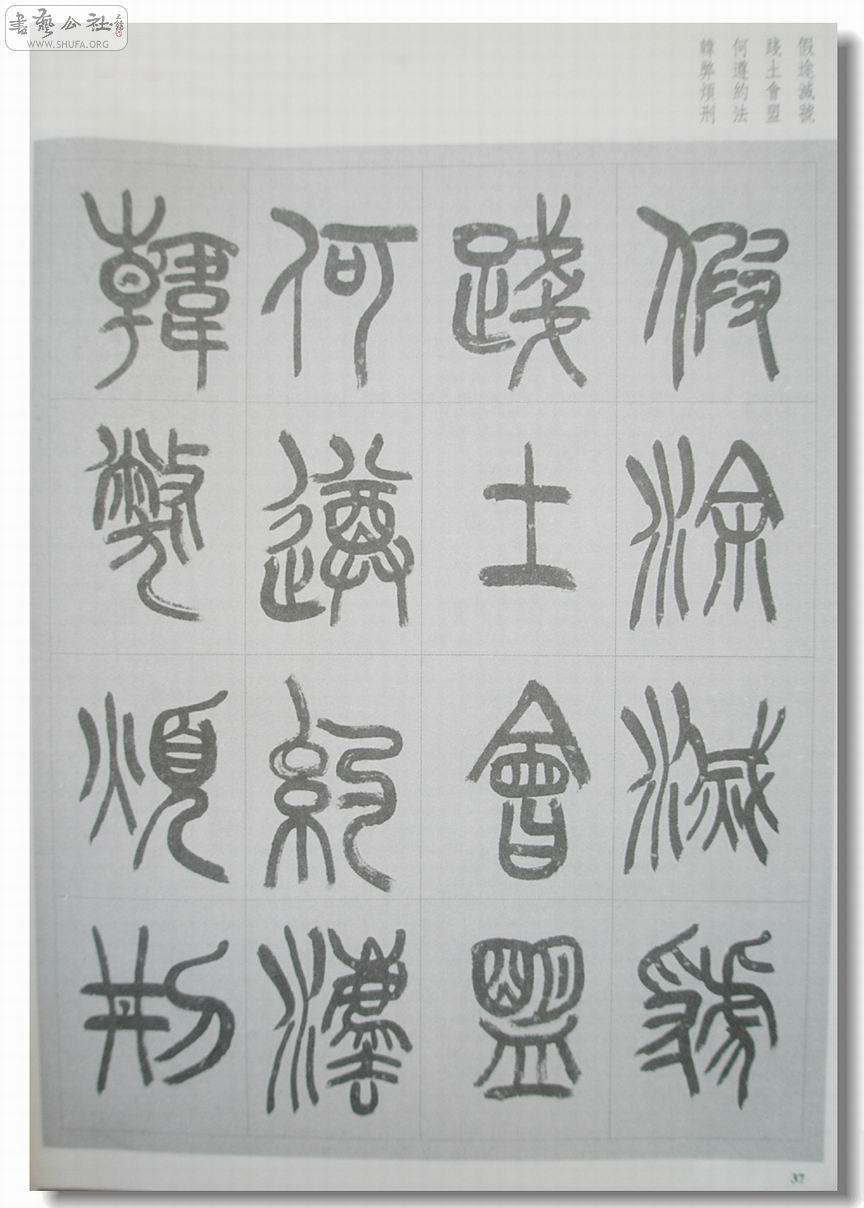 書藝公社
WWW.SHUFA.ORG
假途滅虢
踐土會盟
何遵約法
韓弊煩刑
假涂滅虢
踐土會盟
何遵約灋
韓弊煩刑
37